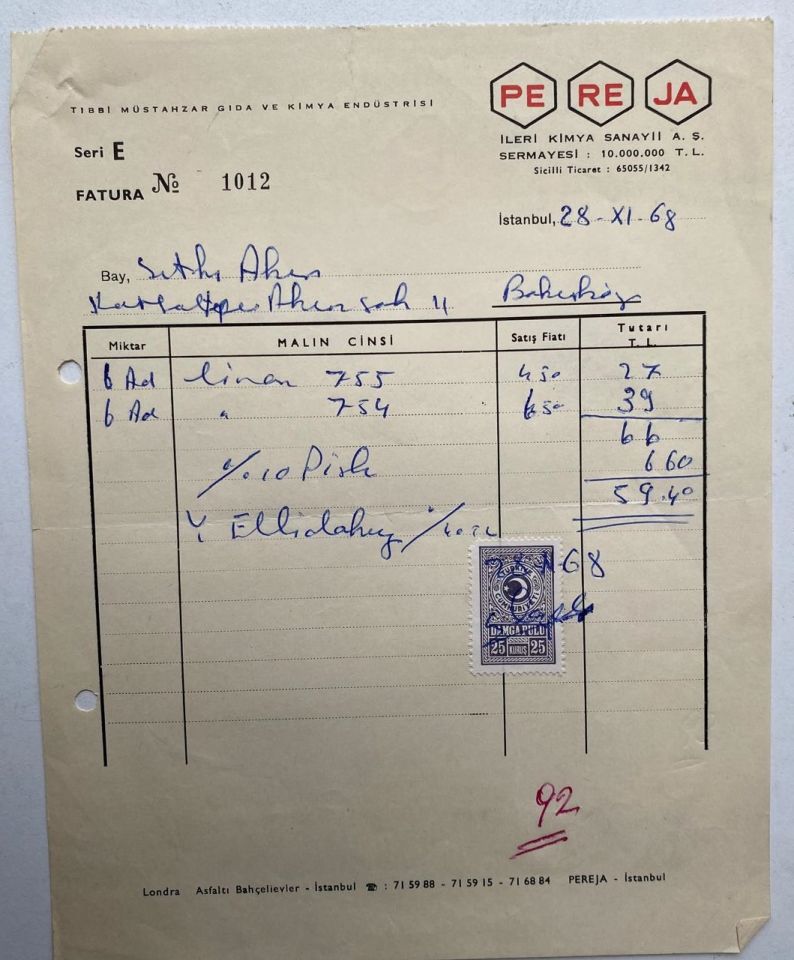 PE RE JA
TIBBİ MÜSTAHZAR GIDA VE KİMYA ENDÜSTRİSİ
İLERİ KİMYA SANAYİİ A. Ş.
SERMAYESİ : 10.000.000 T. L.
Sicilli Ticaret : 65055/1342
Seri E
FATURA № 1012
İstanbul, 28-XI-68
Bay,
Akın
11 Bakırköy
Miktar MALIN CİNSİ Satış Fiatı Tutarı T. L.
6 Ad Liman 755 4 50 27
6 Ad " 754 6 50 39
66
% 10 6 60
59.40
Y.
28 XI 68
TÜRKİYE CUMHURİYETİ
DAMGA PULU
25 KURUŞ 25
92
Londra Asfaltı Bahçelievler - İstanbul ☎ : 71 59 88 - 71 59 15 - 71 68 84 PEREJA - İstanbul